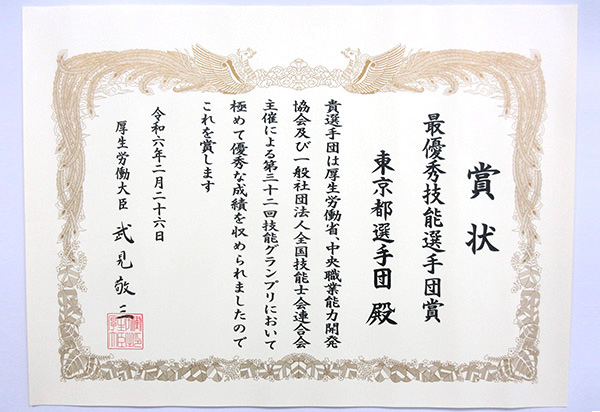 賞状
最優秀技能選手団賞
東京都選手団 殿
貴選手団は厚生労働省、中央職業能力開発
協会及び一般社団法人全国技能士会連合会
主催による第三十二回技能グランプリにおいて
極めて優秀な成績を収められましたので
これを賞します
令和六年二月二十六日
厚生労働大臣 武見敬三